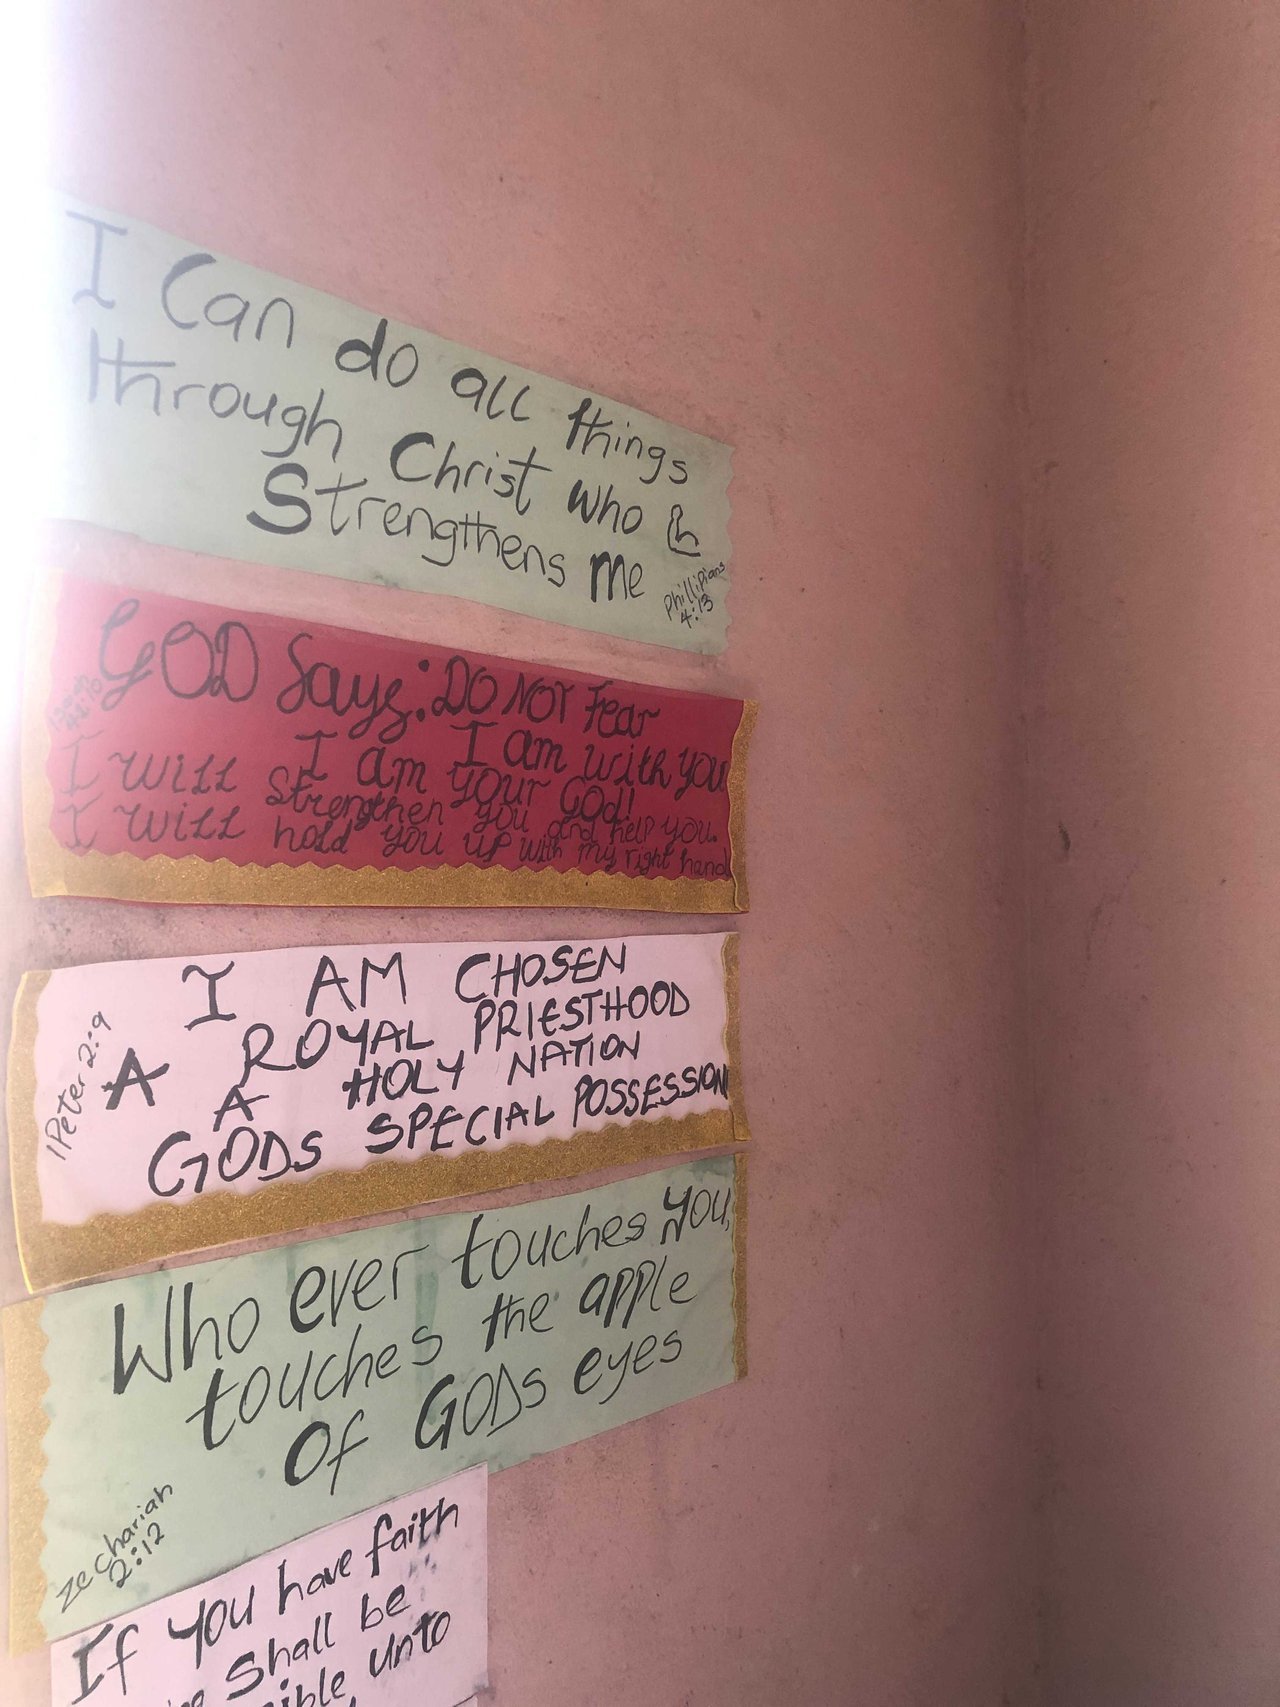 I Can do all things
through Christ who
Strengthens me
Phillipians
4:13
GOD Says: DO NOT Fear
I am with you
I am your God!
I will Strengthen you and help you.
I will hold you up with my right hand
Isaiah
41:10
I AM CHOSEN
A ROYAL PRIESTHOOD
A HOLY NATION
GODS SPECIAL POSSESSION
1Peter 2:9
Who ever touches you,
touches the apple
Of GODs eyes
Zechariah
2:12
If you have faith
Shall be
unto